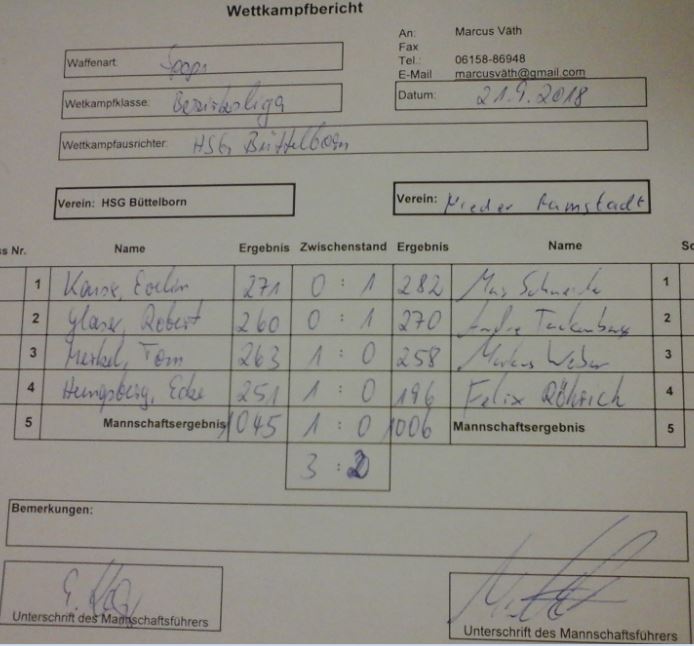 Wettkampfbericht
An: Marcus Väth
Fax
Tel.: 06158-86948
E-Mail marcusväth@gmail.com
Waffenart: Spopi
Wetkampfklasse: Bezirksliga
Datum: 21.9.2018
Wettkampfausrichter: HSG Büttelborn
Verein: HSG Büttelborn
Verein: Nieder Ramstadt
ss Nr. Name Ergebnis Zwischenstand Ergebnis Name Sc
1 271 0 : 1 282 1
2 Glaser, Robert 260 0 : 1 270 Andre 2
3 Merkel, Tom 263 1 : 0 258 Markus Weber 3
4 251 1 : 0 196 Felix Röhrich 4
5 Mannschaftsergebnis 1045 1 : 0 1006 Mannschaftsergebnis 5
3 : 2
Bemerkungen:
Unterschrift des Mannschaftsführers
Unterschrift des Mannschaftsführers